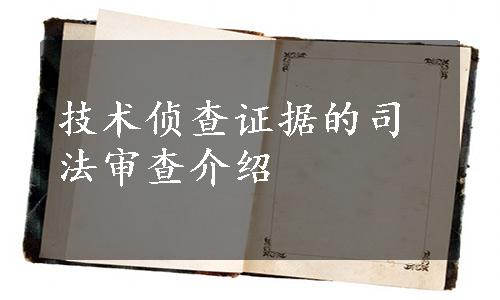 技术侦查证据的司
法审查介绍